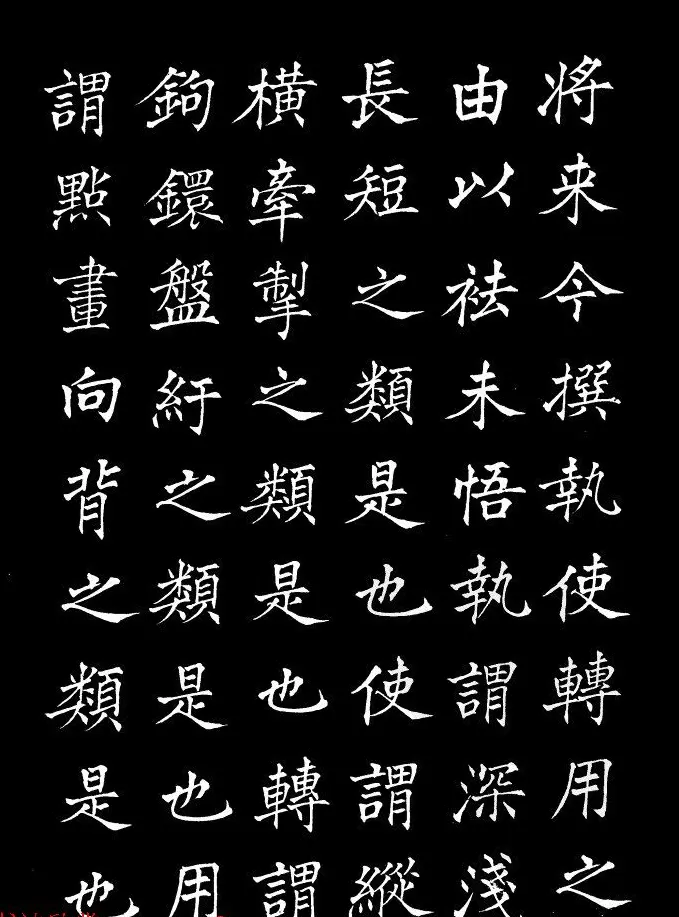 将来今撰執使轉用之
由以袪未悟執謂深淺
長短之類是也使謂縱
橫牽掣之類是也轉謂
鉤鐶盤紆之類是也用
謂點畫向背之類是也